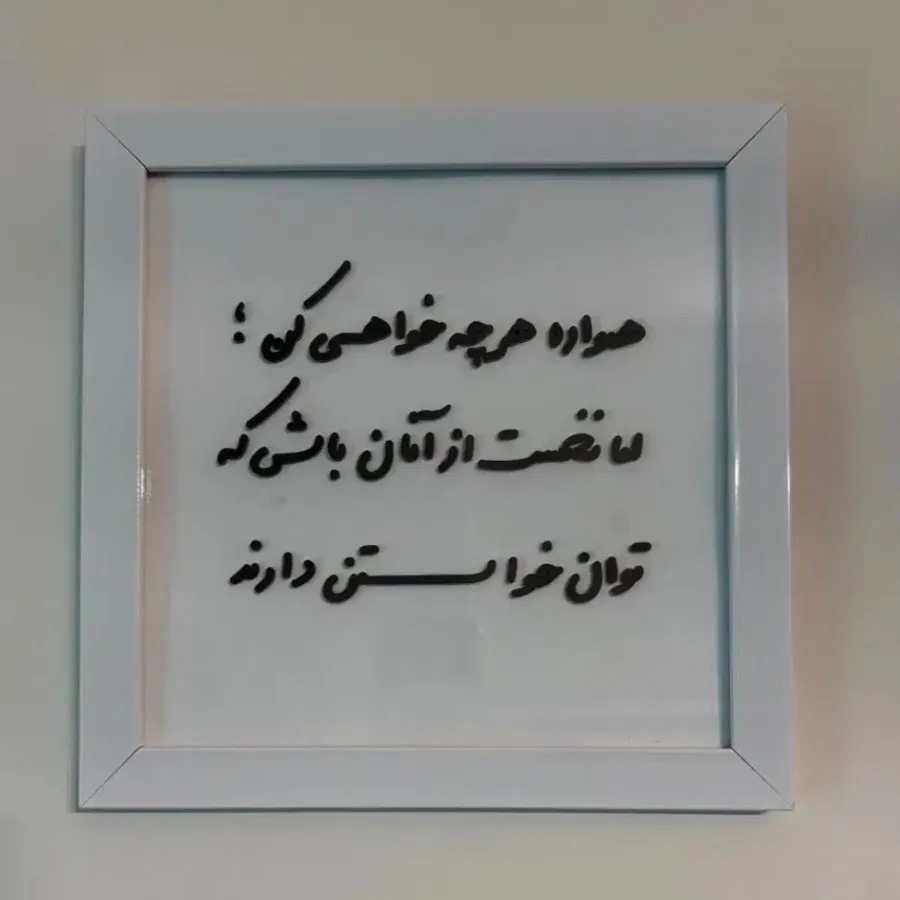 همواره هرچه خواهی کن ؛
اما نخست از آنان باش که
توان خواستن دارند